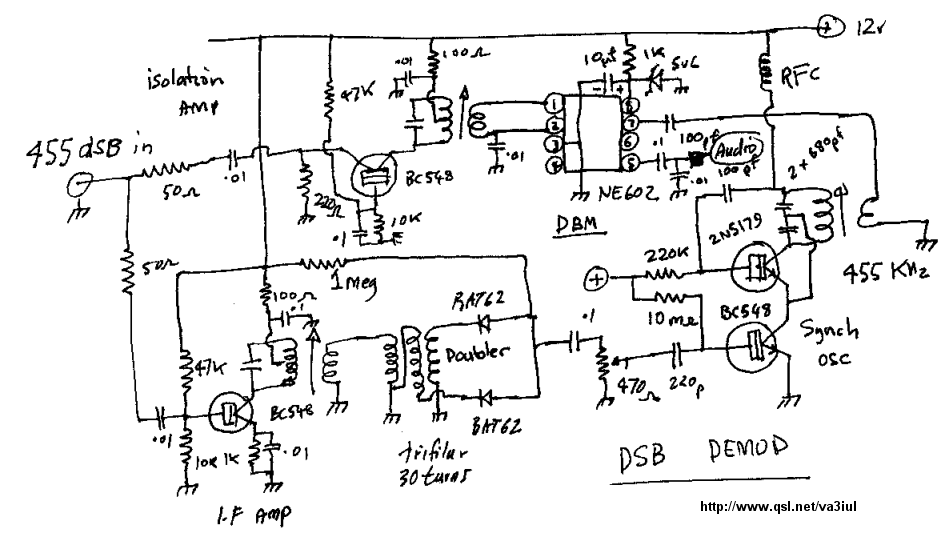 12v
100Ω
.01
10µf
1K
5v6
RFC
isolation
AMP
47K
- +
1
2
3
4
8
7
6
5
.1
100pf
Audio
100pf
2 + 680pf
455 dSB in
.01
50Ω
BC548
.01
.01
NE602
DBM
220Ω
10K
.1
2N5179
220K
+
455 KHz
50Ω
1 meg
BAT62
100Ω
.1
10 mΩ
BC548
Synch
OSC
Doubler
.1
47K
BC548
470Ω
220p
BAT62
.01
10K
1K
.01
trifilar
30 turns
DSB DEMOD
I.F AMP
http://www.qsl.net/va3iul